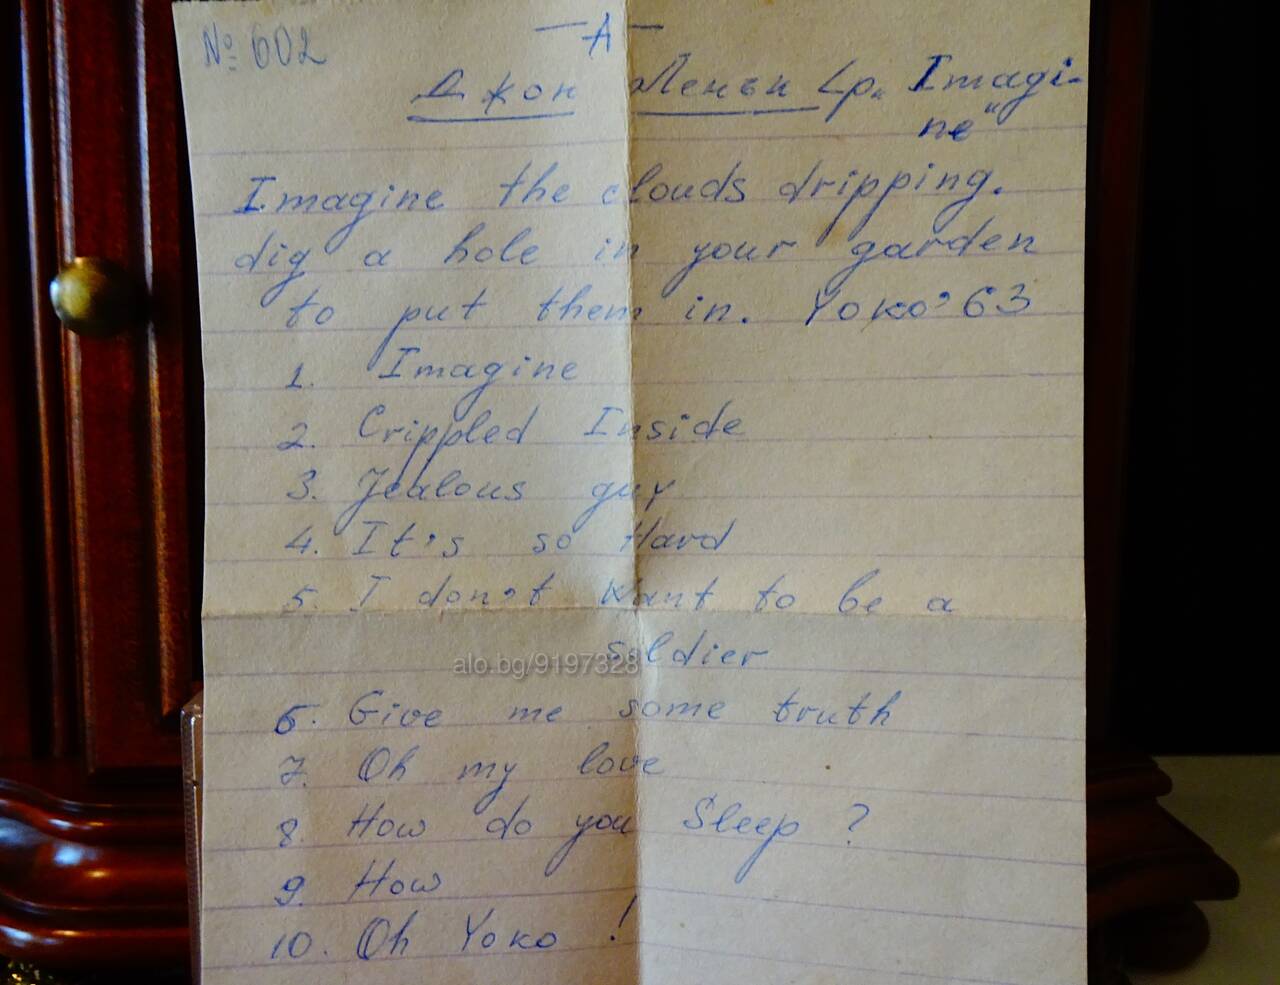 № 602
— A —
Джон Ленън Lp „Imagi-
ne"
Imagine the clouds dripping.
dig a hole in your garden
to put them in. Yoko '63
1. Imagine
2. Crippled Inside
3. Jealous guy
4. It's so Hard
5. I don't want to be a
soldier
alo.bg/9197328
6. Give me some truth
7. Oh my love
8. How do you Sleep ?
9. How
10. Oh Yoko !